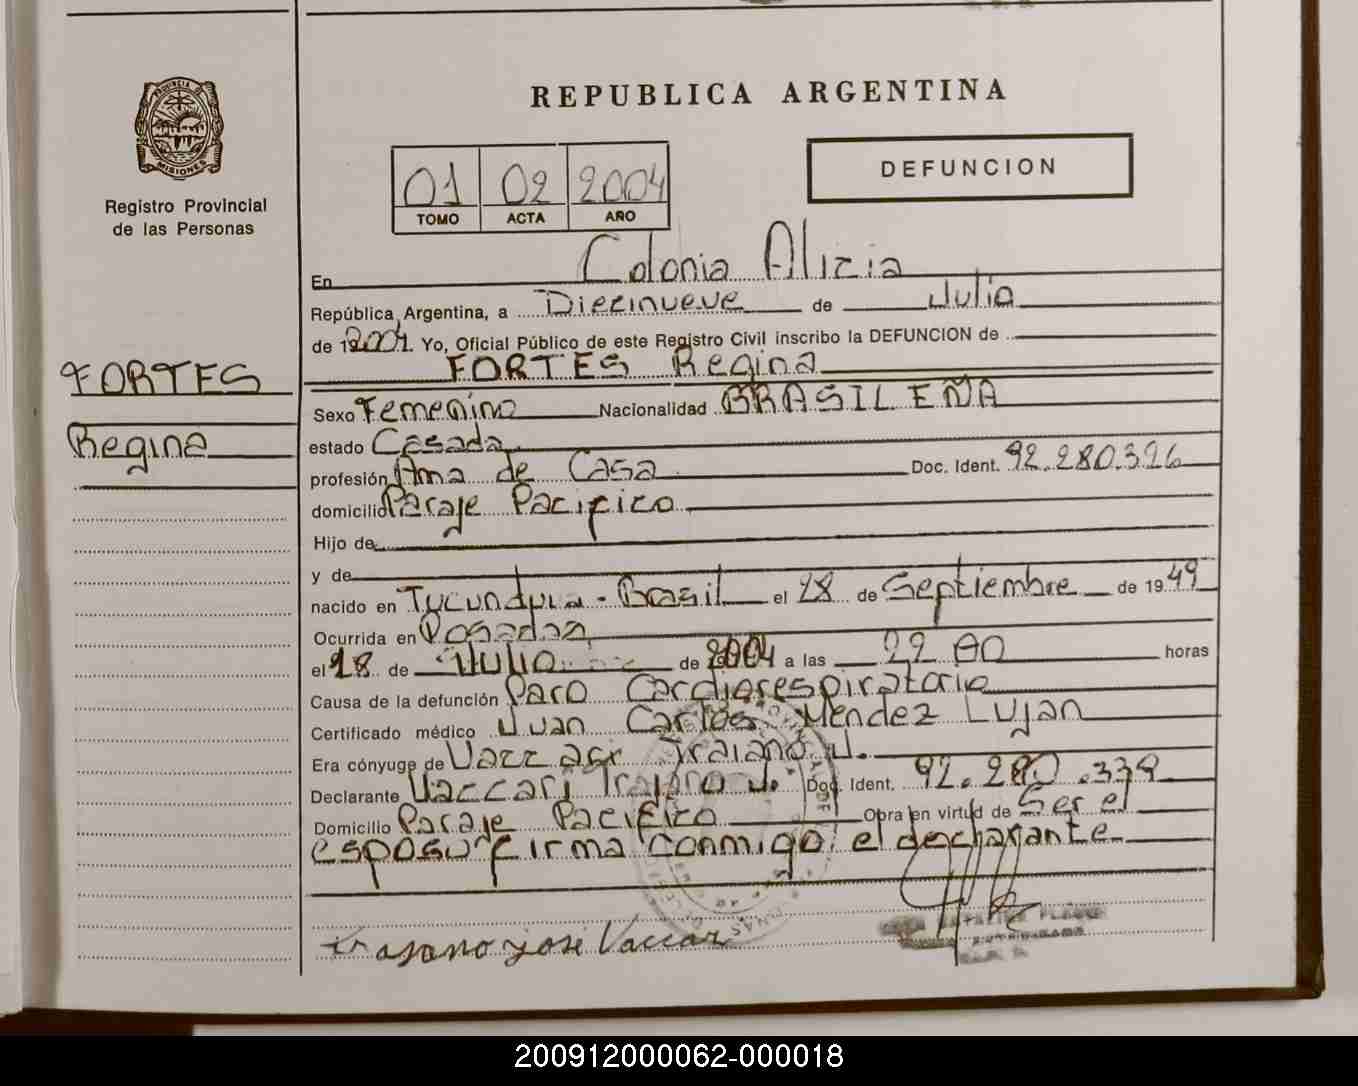 PROVINCIA DE
MISIONES
Registro Provincial
de las Personas
FORTES
Regina
REPUBLICA ARGENTINA
01 02 2004
TOMO ACTA AÑO
DEFUNCION
En Colonia Alicia
República Argentina, a Diecinueve de Julio
de 12004. Yo, Oficial Público de este Registro Civil inscribo la DEFUNCION de
FORTES Regina
Sexo Femenino Nacionalidad BRASILEÑA
estado Casada
profesión Ama de Casa Doc. Ident. 92.280.326
domicilio Paraje Pacifico
Hijo de
y de
nacido en Tucunduva - Brasil el 28 de Septiembre de 1949
Ocurrida en Posadas
el 18 de Julio de 2004 a las 22 00 horas
Causa de la defunción Paro Cardiorespiratorio
Certificado médico Juan Carlos Mendez Lujan
Era cónyuge de Vaccari Traiano J.
Declarante Vaccari Trajano J. Doc. Ident. 92.280.339
Domicilio Paraje Pacifico Obra en virtud de Ser el
esposo firma conmigo el declarante
Trajano José Vaccari
200912000062-000018